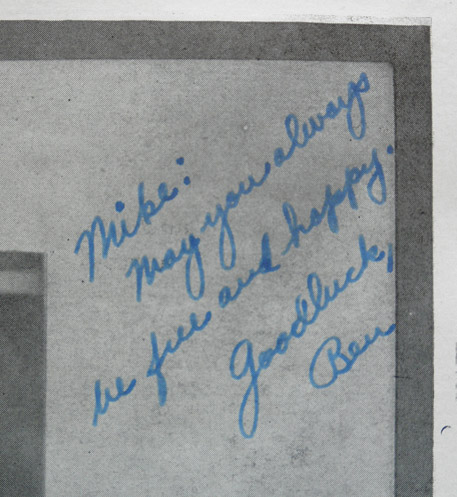 Mike:
May you always
be free and happy.
Goodluck,
Ben